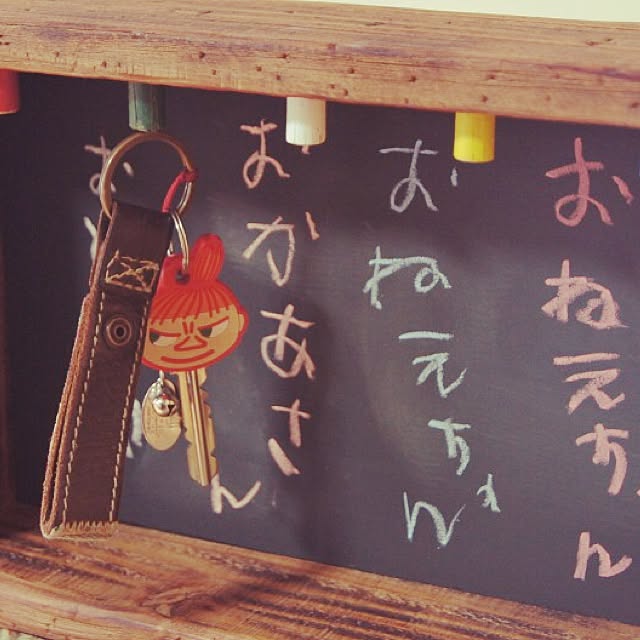 おねえちゃん
おねえちゃん
おかあさん